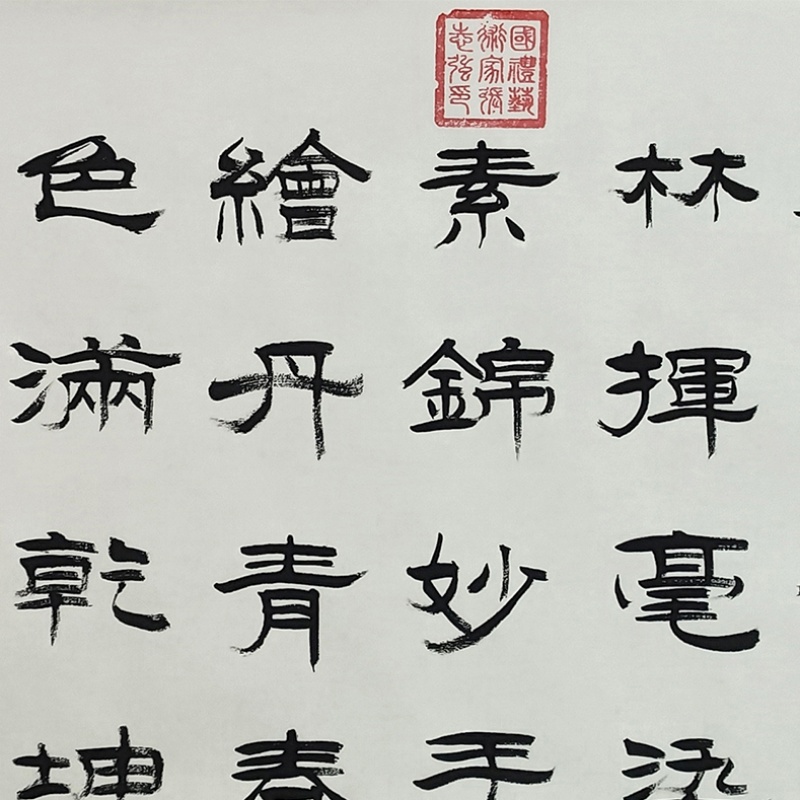 國禮藝
術家張
志強印
林揮毫染
素錦妙手
繪丹青春
色滿乾坤